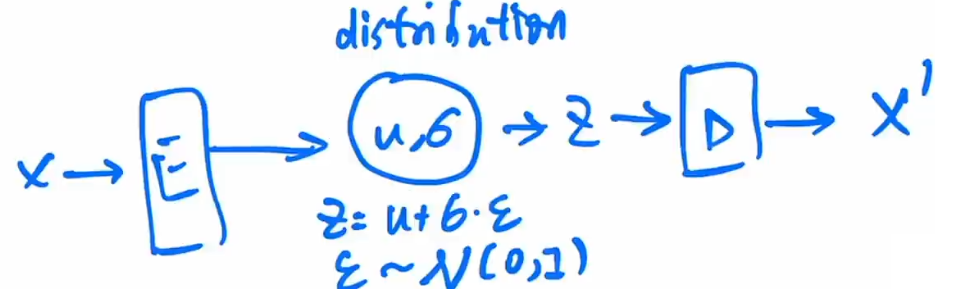 distribution
x → E → u,σ → z → D → x'
z = u + σ · ε
ε ~ N(0,I)